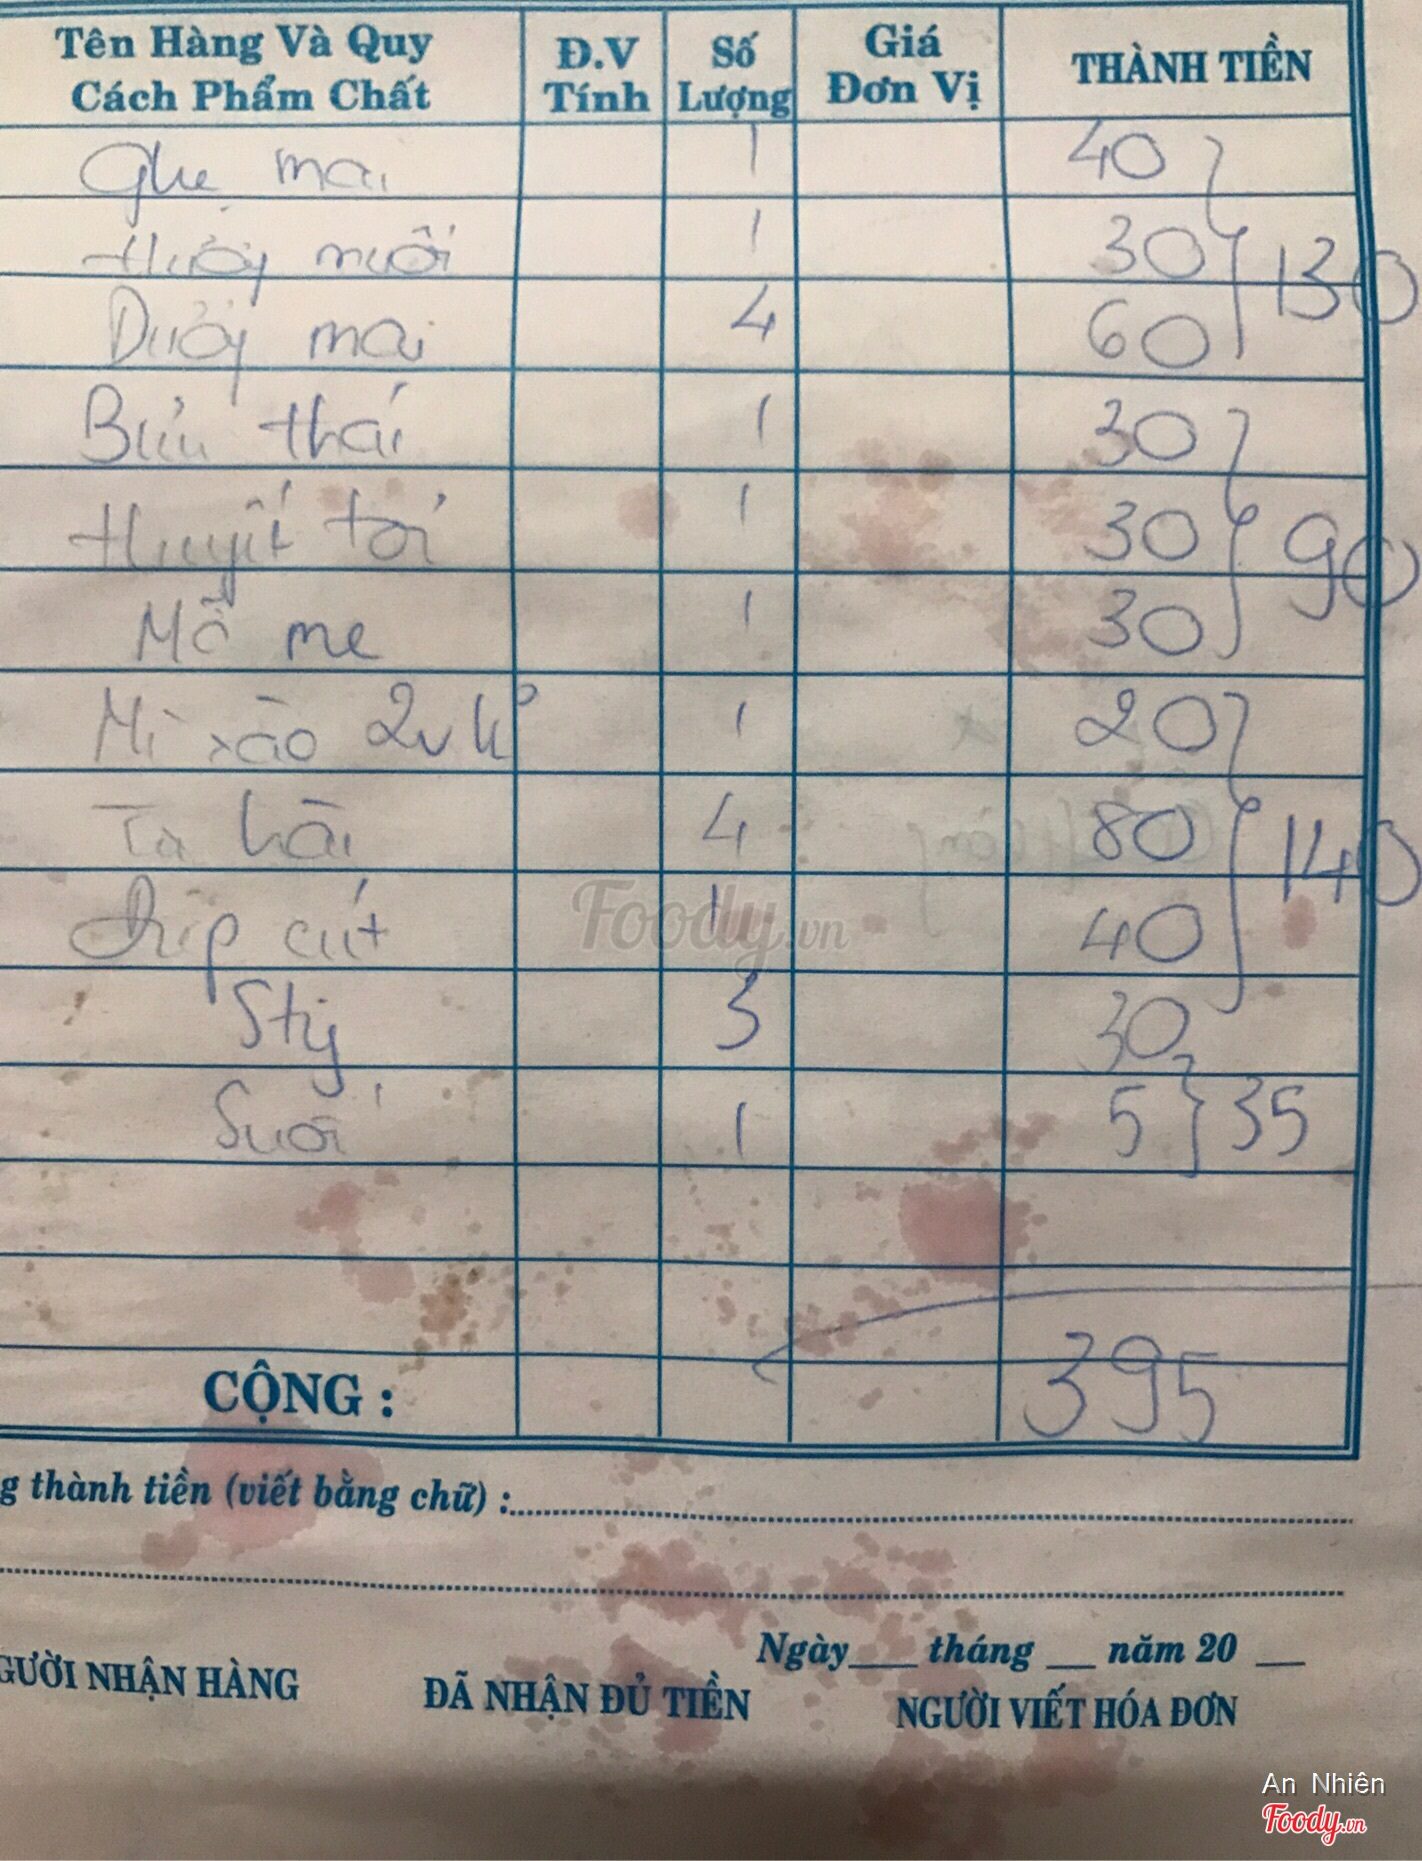 Tên Hàng Và Quy Cách Phẩm Chất Đ.V Tính Số Lượng Giá Đơn Vị THÀNH TIỀN
Ghẹ mai 1 40
muối 1 30 130
mai 4 60
thái 1 30
Huyết tỏi 1 30 90
Mồ me 1 30
Mì xào 1 20
4 80 140
chíp cút 1 40
Stig 3 30
Suối 1 5 35
CỘNG : 395
g thành tiền (viết bằng chữ) :
Ngày tháng năm 20
GƯỜI NHẬN HÀNG ĐÃ NHẬN ĐỦ TIỀN NGƯỜI VIẾT HÓA ĐƠN
Foody.vn
An Nhiên
Foody.vn